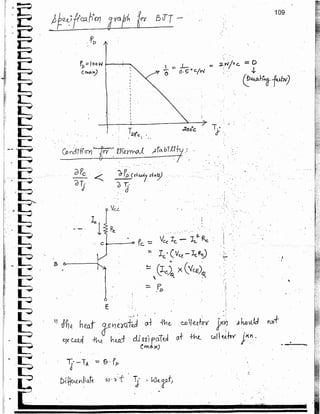 109
Specification graph for BJT -
P_D
P_D = 100W
(max)
1/θ = 1/0.5°C/W = 2W/°C = D
(Derating factor)
T_j
200°C
Condition for thermal stability:
∂P_C/∂T_j < ∂P_D (steady state)/∂T_j
V_CC
I_C
R_C
C
B
E
P_C = V_CC I_C - I_C² R_C
= I_C (V_CC - I_C R_C)
= (I_C)_Q × (V_CE)_Q
= P_D
" The heat generated at the collector jxn should not
exceed the heat dissipated at the collector jxn.
(max)
T_j - T_A = θ·P_D
Differentiate w.r.t T_j, we get,